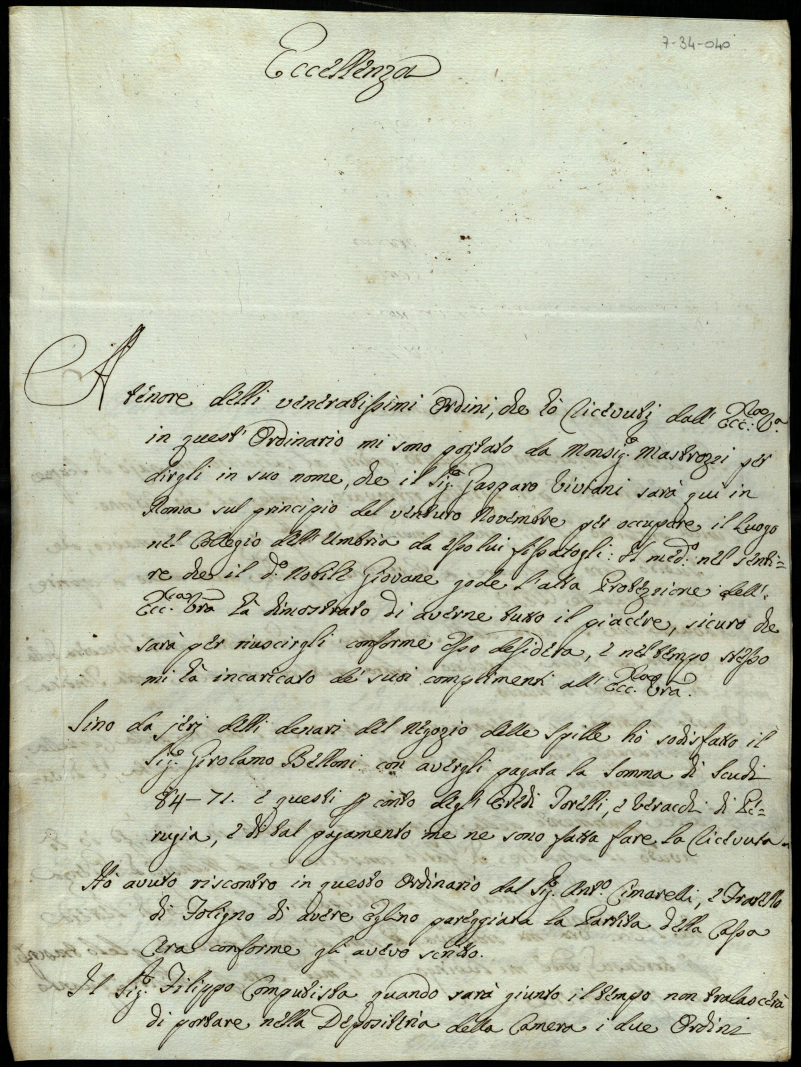 7-34-040
Eccellenza
A tenore delli veneratissimi Ordini, che hò ricevuti dall' Ecc: Va
in quest' Ordinario mi sono portato da Monsig.re Mastrozzi per
dirgli in suo nome, che il Sig.re Gasparo Viviani sarà quì in
Roma sul principio del venturo Novembre per occupare il luogo
nel Colegio dell' Umbria da esso lui fissatogli: Il med.o nel senti=
re che il d.o Nobile Giovane gode l'alta Protezione dell'
Ecc: Vra hà dimostrato di averne tutto il piacere, sicuro che
sarà per riuscirgli conforme esso desidera, e nel tempo stesso
mi hà incaricato de suoi complimenti all' Ecc: Vra.
Sino da jerj delli denari del Negozio delle Spille hò sodisfatto il
Sig.re Girolamo Belloni con avergli pagata la somma di Scudi
84-71. e questi p conto degli Eredi Torelli, e Veracchi di Pe=
rugia, e di tal pagamento me ne sono fatta fare la ricevuta.
Hò avuto riscontro in questo Ordinario dal Sig.re Ant.o Cimarelli, e Fratello
di Foligno di avere eglino pareggiata la Partita della Cassa
Cera conforme gli avevo scritto.
Il Sig.re Filippo Computista quando sarà giunto il tempo non tralascerà
di portare nella Depositeria della Camera i due Ordini